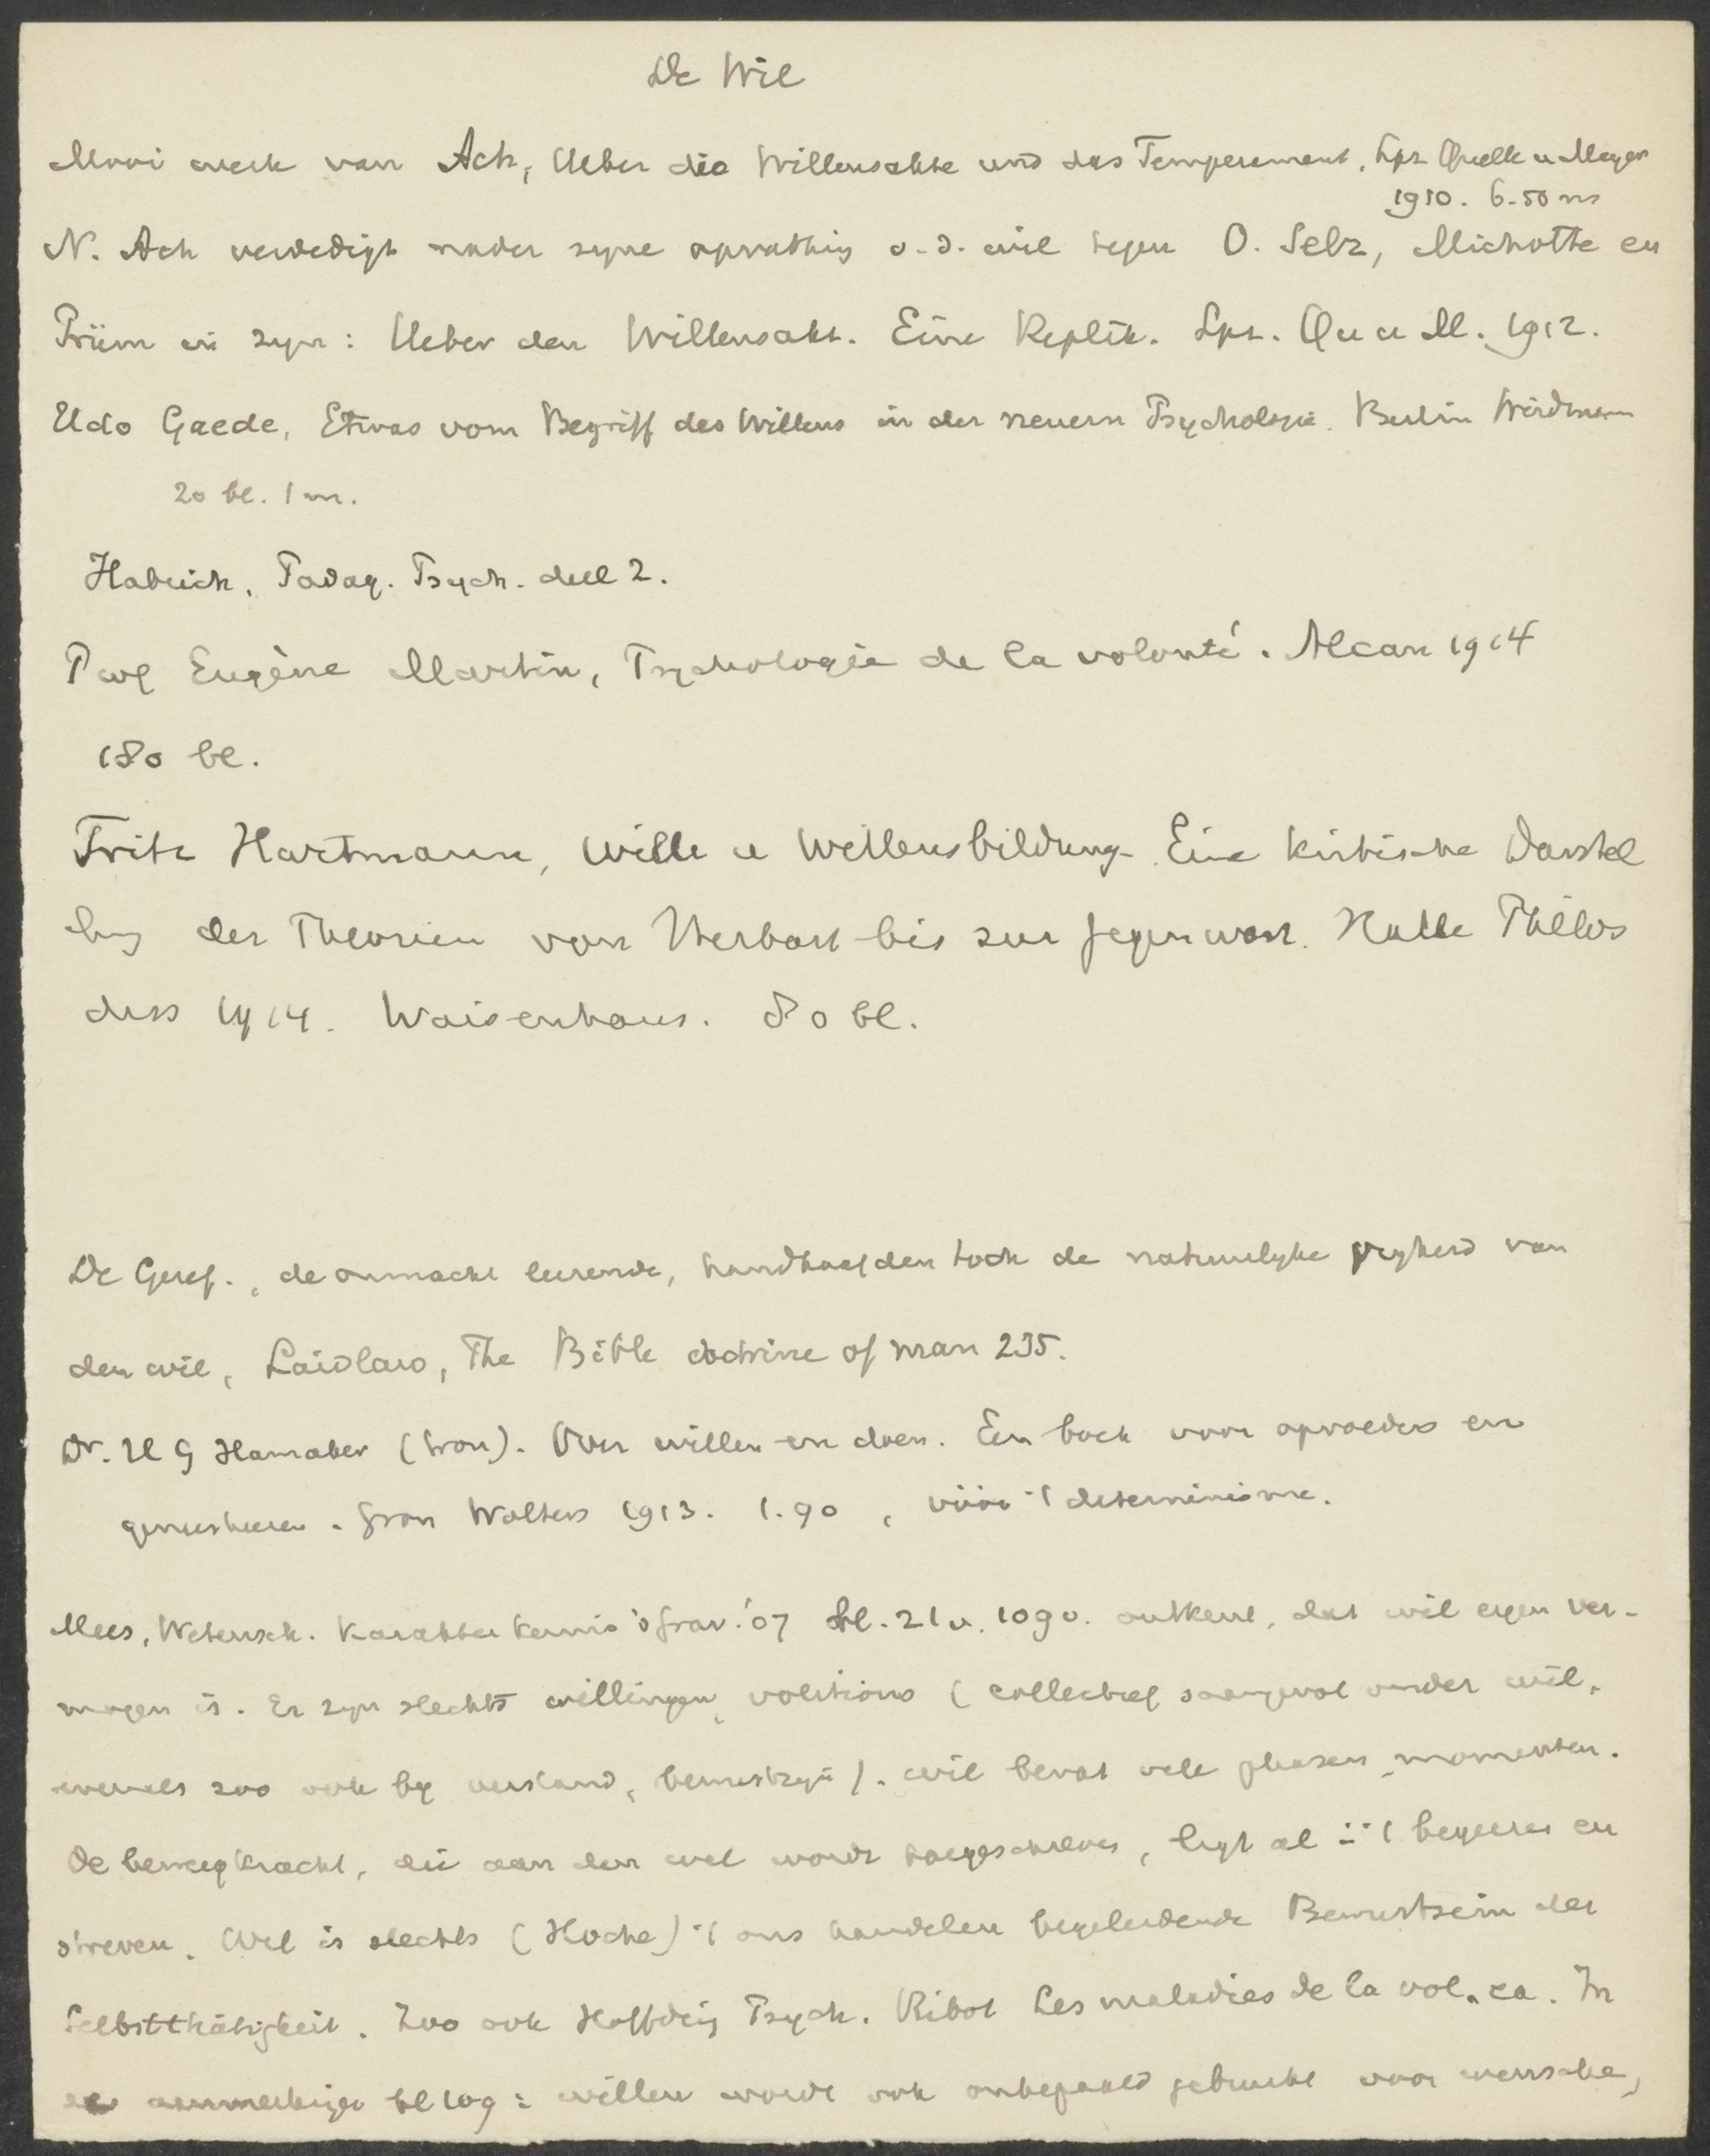 De Wil
Mooi werk van Ach, Ueber die Willensakte und das Temperament. Lpz. Quelle u Meyer
1910. 6.50 m
N. Ach verdedigt nader zyne opvatting v. d. wil tegen O. Selz, Michotte en
Prüm in zyn: Ueber den Willensakt. Eine Replik. Lpz. Qu u M. 1912.
Udo Gaede, Etwas vom Begriff des Willens in der neuern Psychologie. Berlin Weidmann
20 bl. 1 m.
Habrich, Padag. Psych. deel 2.
Prof Eugène Martin, Psychologie de la volonté. Alcan 1914
180 bl.
Fritz Hartmann, Wille u Willensbildung. Eine kritische Darstel
lung der Theorien von Herbart bis zur gegenwart. Halle Philos
diss 1914. Waisenhaus. 80 bl.
De Geref., de onmacht leerende, handhaafden toch de natuurlyke vryheid van
den wil, Laidlaw, The Bible doctrine of man 235.
Dr. H G Hamaker (Gron). Over willen en doen. Een boek voor opvoeders en
geneesheeren. Gron Wolters 1913. 1.90, vóór 't determinisme.
Mees, Wetensch. Karakterkennis 's Grav. '07 bl. 21 v. 109 v. ontkent, dat wil eigen ver-
mogen is. Er zyn slechts willingen, volitions (collectief saamgevat onder wil,
evenals zoo ook by verstand, bewustzyn). Wil bevat vele phasen, momenten.
De beweegkracht, die aan den wil wordt toegeschreven, ligt al in 't begeeren en
streven. Wil is slechts (Hoche) 't ons handelen begeleidende Bewustsein der
Selbstthätigkeit. Zoo ook Höffding Psych. Ribot Les maladies de la vol. ea. In
aanmerking bl 109: willen wordt ook onbepaald gebruikt voor wensche,